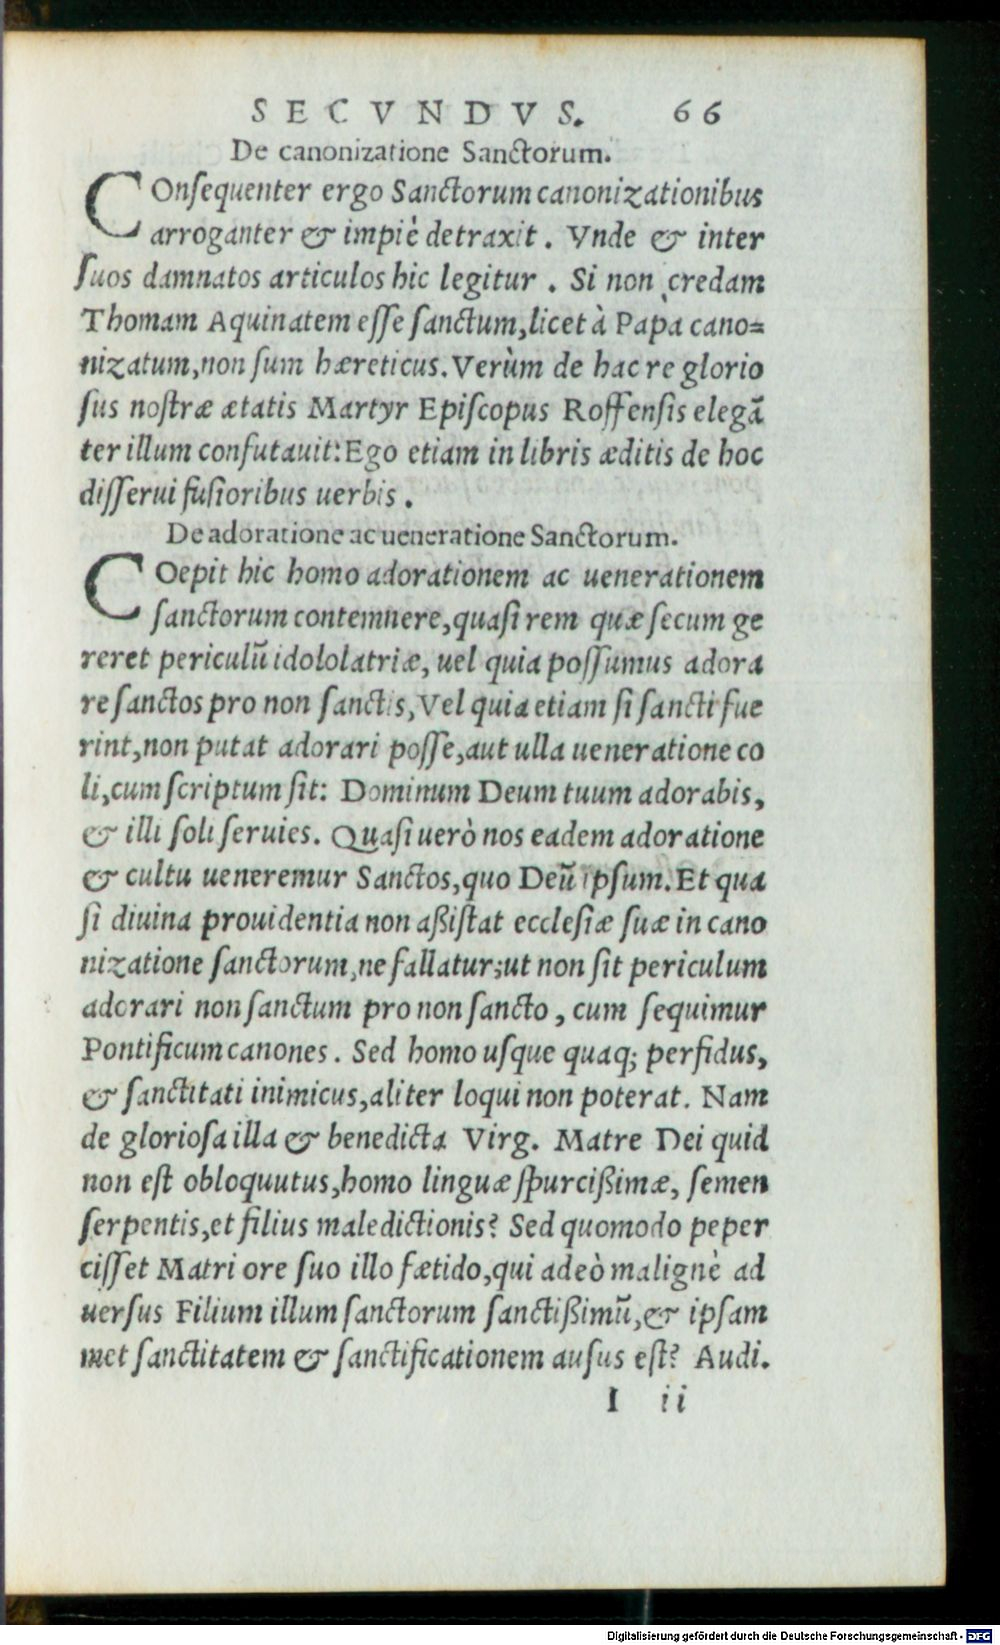 SECVNDVS. 66
De canonizatione Sanctorum.
COnſequenter ergo Sanctorum canonizationibus
arroganter & impiè detraxit. Vnde & inter
ſuos damnatos articulos hic legitur. Si non credam
Thomam Aquinatem eſſe ſanctum, licet à Papa cano=
nizatum, non ſum hæreticus. Verùm de hac re glorio
ſus noſtræ ætatis Martyr Epiſcopus Roffenſis elegā
ter illum confutauit: Ego etiam in libris æditis de hoc
diſſerui fuſioribus uerbis.
De adoratione ac ueneratione Sanctorum.
COepit hic homo adorationem ac uenerationem
ſanctorum contemnere, quaſi rem quæ ſecum ge
reret periculū idololatriæ, uel quia poſſumus adora
re ſanctos pro non ſanctis, Vel quia etiam ſi ſancti fue
rint, non putat adorari poſſe, aut ulla ueneratione co
li, cum ſcriptum ſit: Dominum Deum tuum adorabis,
& illi ſoli ſeruies. Quaſi uerò nos eadem adoratione
& cultu ueneremur Sanctos, quo Deū ipſum. Et qua
ſi diuina prouidentia non aßiſtat eccleſiæ ſuæ in cano
nizatione ſanctorum, ne fallatur; ut non ſit periculum
adorari non ſanctum pro non ſancto, cum ſequimur
Pontificum canones. Sed homo uſque quaq; perfidus,
& ſanctitati inimicus, aliter loqui non poterat. Nam
de glorioſa illa & benedicta Virg. Matre Dei quid
non eſt obloquutus, homo linguæ ſpurcißimæ, ſemen
ſerpentis, et filius maledictionis? Sed quomodo peper
ciſſet Matri ore ſuo illo fætido, qui adeò malignè ad
uerſus Filium illum ſanctorum ſanctißimū, & ipſam
met ſanctitatem & ſanctificationem auſus eſt? Audi.
I ii
Digitalisierung gefördert durch die Deutsche Forschungsgemeinschaft - DFG